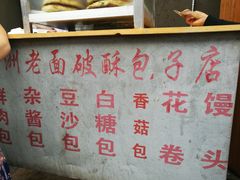 州老面破酥包子店
鲜肉包
杂酱包
豆沙包
白糖包
香菇包
花卷
馒头